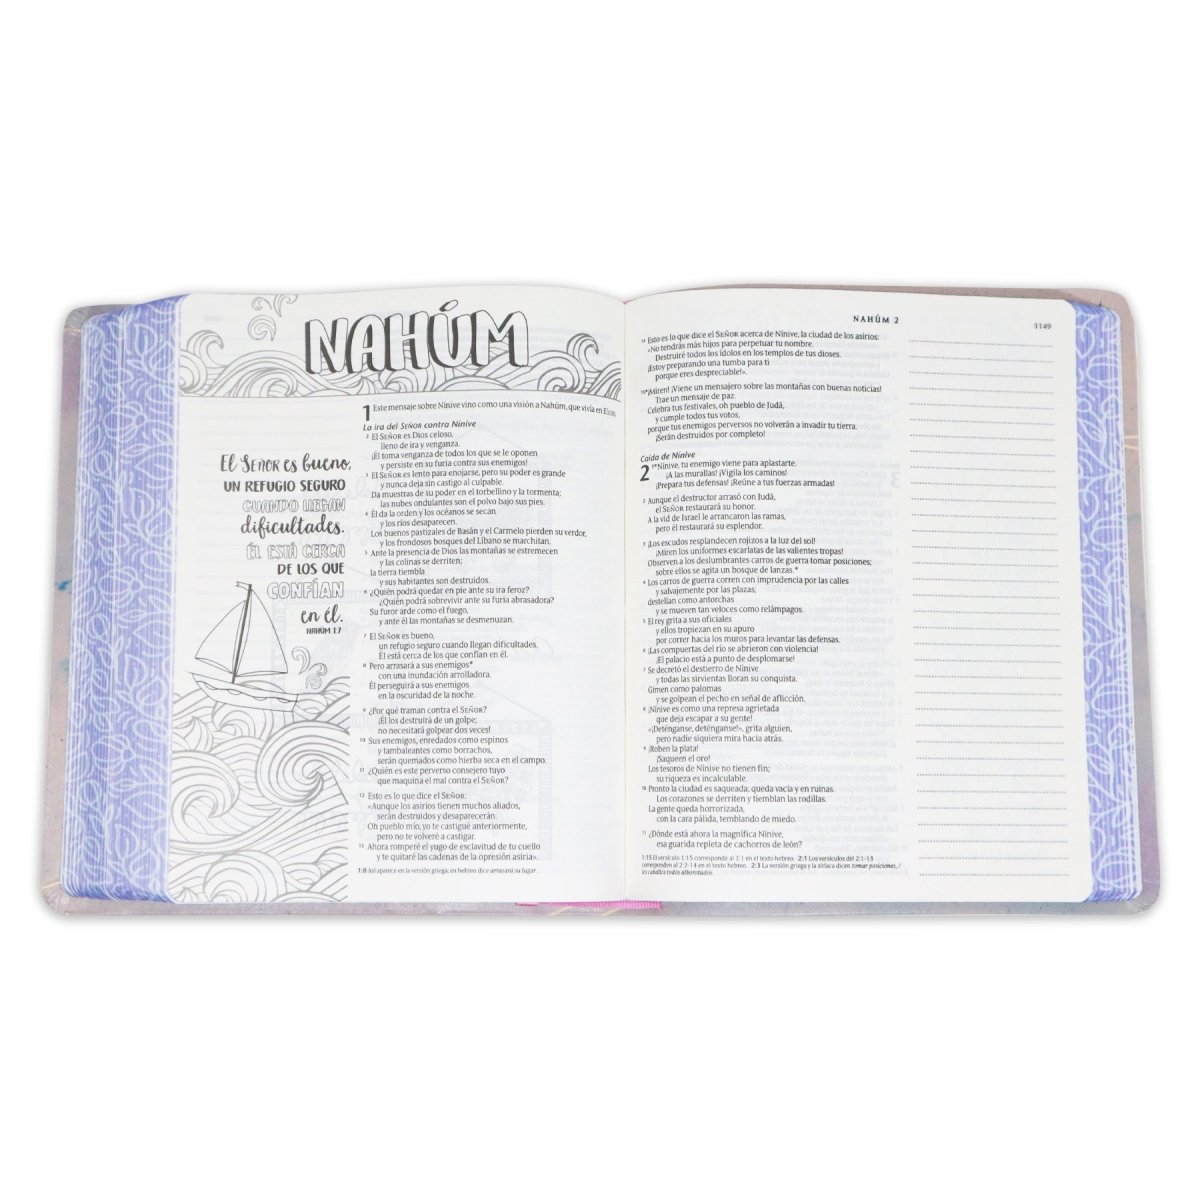 NAHÚM
El SEÑOR es bueno,
UN REFUGIO SEGURO
CUANDO LLEGAN
dificultades.
ÉL ESTÁ CERCA
DE LOS QUE
CONFÍAN
en él.
NAHÚM 1:7
1 Este mensaje sobre Nínive vino como una visión a Nahúm, que vivía en Elcos.
La ira del SEÑOR contra Nínive
2 El SEÑOR es Dios celoso,
lleno de ira y venganza.
¡Él toma venganza de todos los que se le oponen
y persiste en su furia contra sus enemigos!
3 El SEÑOR es lento para enojarse, pero su poder es grande
y nunca deja sin castigo al culpable.
Da muestras de su poder en el torbellino y la tormenta;
las nubes ondulantes son el polvo bajo sus pies.
4 Él da la orden y los océanos se secan
y los ríos desaparecen.
Los buenos pastizales de Basán y el Carmelo pierden su verdor,
y los frondosos bosques del Líbano se marchitan.
5 Ante la presencia de Dios las montañas se estremecen
y las colinas se derriten;
la tierra tiembla
y sus habitantes son destruidos.
6 ¿Quién podrá quedar en pie ante su ira feroz?
¿Quién podrá sobrevivir ante su furia abrasadora?
Su furor arde como el fuego,
y ante él las montañas se desmenuzan.
7 El SEÑOR es bueno,
un refugio seguro cuando llegan dificultades.
Él está cerca de los que confían en él.
8 Pero arrasará a sus enemigos*
con una inundación arrolladora.
Él perseguirá a sus enemigos
en la oscuridad de la noche.
9 ¿Por qué traman contra el SEÑOR?
¡Él los destruirá de un golpe;
no necesitará golpear dos veces!
10 Sus enemigos, enredados como espinos
y tambaleantes como borrachos,
serán quemados como hierba seca en el campo.
11 ¿Quién es este perverso consejero tuyo
que maquina el mal contra el SEÑOR?
12 Esto es lo que dice el SEÑOR:
«Aunque los asirios tienen muchos aliados,
serán destruidos y desaparecerán.
Oh pueblo mío, yo te castigué anteriormente,
pero no te volveré a castigar.
13 Ahora romperé el yugo de esclavitud de tu cuello
y te quitaré las cadenas de la opresión asiria».
1:8 Así aparece en la versión griega; en hebreo dice arrasará su lugar.
NAHÚM 2
1149
14 Esto es lo que dice el SEÑOR acerca de Nínive, la ciudad de los asirios:
«No tendrás más hijos para perpetuar tu nombre.
Destruiré todos los ídolos en los templos de tus dioses.
¡Estoy preparando una tumba para ti
porque eres despreciable!».
15 *¡Miren! ¡Viene un mensajero sobre las montañas con buenas noticias!
Trae un mensaje de paz.
Celebra tus festivales, oh pueblo de Judá,
y cumple todos tus votos,
porque tus enemigos perversos no volverán a invadir tu tierra.
¡Serán destruidos por completo!
Caída de Nínive
2 1*Nínive, tu enemigo viene para aplastarte.
¡A las murallas! ¡Vigila los caminos!
¡Prepara tus defensas! ¡Reúne a tus fuerzas armadas!
2 Aunque el destructor arrasó con Judá,
el SEÑOR restaurará su honor.
A la vid de Israel le arrancaron las ramas,
pero él restaurará su esplendor.
3 ¡Los escudos resplandecen rojizos a la luz del sol!
¡Miren los uniformes escarlatas de las valientes tropas!
Observen a los deslumbrantes carros de guerra tomar posiciones;
sobre ellos se agita un bosque de lanzas.*
4 Los carros de guerra corren con imprudencia por las calles
y salvajemente por las plazas;
destellan como antorchas
y se mueven tan veloces como relámpagos.
5 El rey grita a sus oficiales
y ellos tropiezan en su apuro
por correr hacia los muros para levantar las defensas.
6 ¡Las compuertas del río se abrieron con violencia!
¡El palacio está a punto de desplomarse!
7 Se decretó el destierro de Nínive
y todas las sirvientas lloran su conquista.
Gimen como palomas
y se golpean el pecho en señal de aflicción.
8 ¡Nínive es como una represa agrietada
que deja escapar a su gente!
«¡Deténganse, deténganse!», grita alguien,
pero nadie siquiera mira hacia atrás.
9 ¡Roben la plata!
¡Saqueen el oro!
Los tesoros de Nínive no tienen fin;
su riqueza es incalculable.
10 Pronto la ciudad es saqueada; queda vacía y en ruinas.
Los corazones se derriten y tiemblan las rodillas.
La gente queda horrorizada,
con la cara pálida, temblando de miedo.
11 ¿Dónde está ahora la magnífica Nínive,
esa guarida repleta de cachorros de león?
1:15 El versículo 1:15 corresponde al 2:1 en el texto hebreo. 2:1 Los versículos del 2:1-13
corresponden al 2:2-14 en el texto hebreo. 2:3 La versión griega y la siríaca dicen tomar posiciones, /
los caballos todos alborotados.